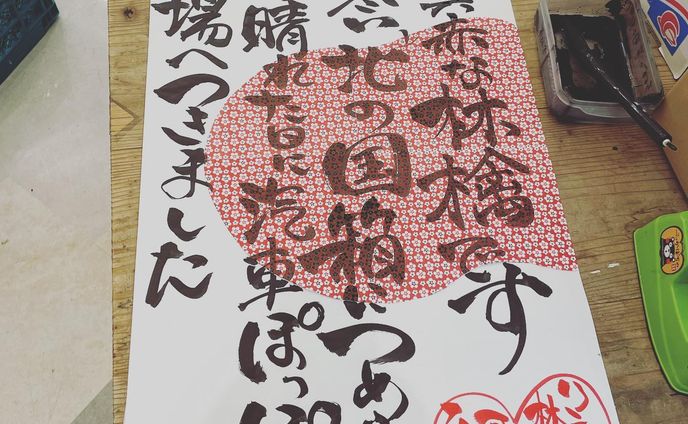 真赤な林檎です
い北の国箱につめ
晴れた日に汽車ぽっぽ
場へつきました
リン
林